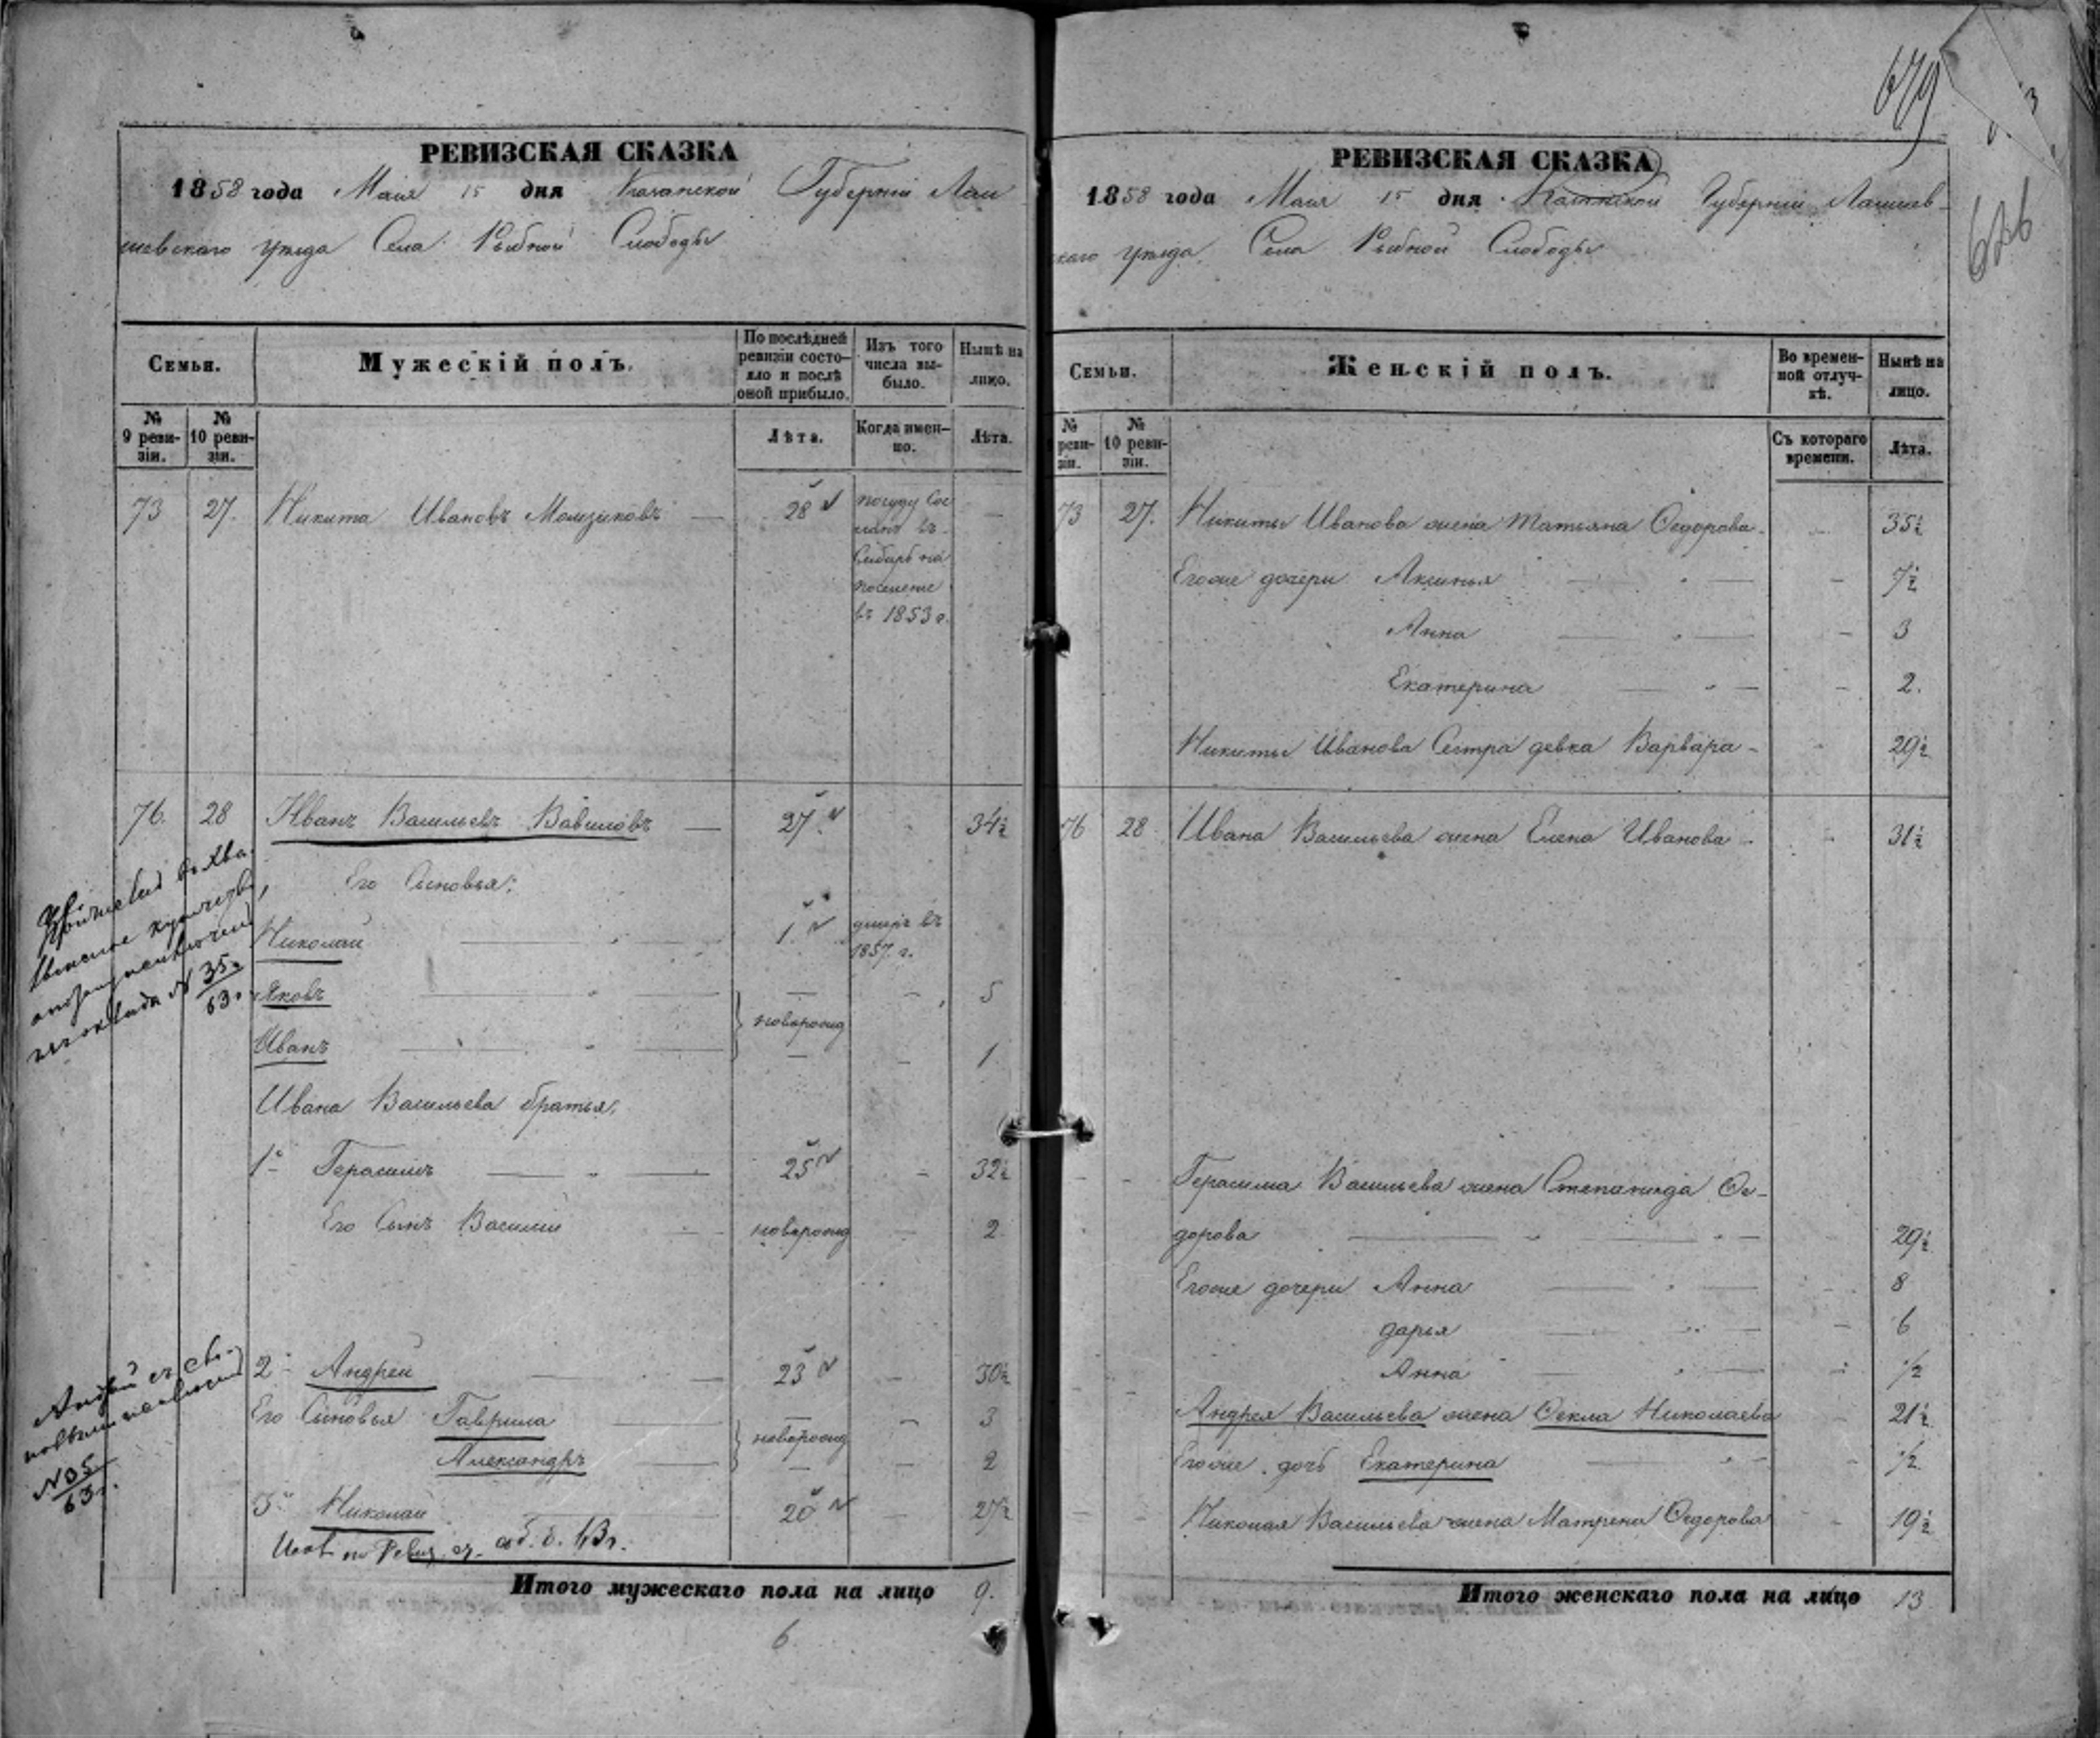 679
3
626
РЕВИЗСКАЯ СКАЗКА
1858 года Маія 15 дня Казанской Губерніи Лаи
шевскаго уѣзда Села Рыбной Слободы
Семьи.
Мужескій полъ.
По послѣдней ревизіи состояло и послѣ оной прибыло.
Изъ того числа выбыло.
Нынѣ на лицо.
№ 9 ревизіи.
№ 10 ревизіи.
Лѣта.
Когда именно.
Лѣта.
73 27. Никита Ивановъ 28 —
Сибирь на
въ 1853 г.
76. 28 Иванъ Васильевъ Вавиловъ — 27. 34½
Его Сыновья:
Николай 1. умеръ въ
1857. г.
Яковъ — 5
новорожд
Иванъ — 1
Ивана Васильева братья:
1й Герасимъ 25 32½
Его Сынъ Василій новорожд 2
2й Андрей 23 30½
Его Сыновья Гаврила — 3
новорожд
Александръ — 2
3й Николай 20 27½
Итого мужескаго пола на лицо 9.
6.
№ 35
63.
Андрей съ
№ 35
63 г.
РЕВИЗСКАЯ СКАЗКА
1858 года Маія 15 дня Казанской Губерніи Лаишев-
скаго уѣзда Села Рыбной Слободы
Семьи.
Женскій полъ.
Во временной отлучкѣ.
Нынѣ на лицо.
№ ревизіи.
№ 10 ревизіи.
Съ котораго времени.
Лѣта.
73 27. Никиты Иванова жена Татьяна Федорова 35½
Егоже дочери Аксинья 7½
Анна 3
Екатерина 2.
Никиты Иванова Сестра девка Варвара 29½
76 28 Ивана Васильева жена Елена Иванова 31½
Герасима Васильева жена Степанида Фе-
дорова 29½
Егоже дочери Анна 8
дарья 6
Анна ½
Андрея Васильева жена Фекла Николаева 21½
Егоже дочь Екатерина ½
Николая Васильева жена Матрена Федорова 19½
Итого женскаго пола на лицо 13